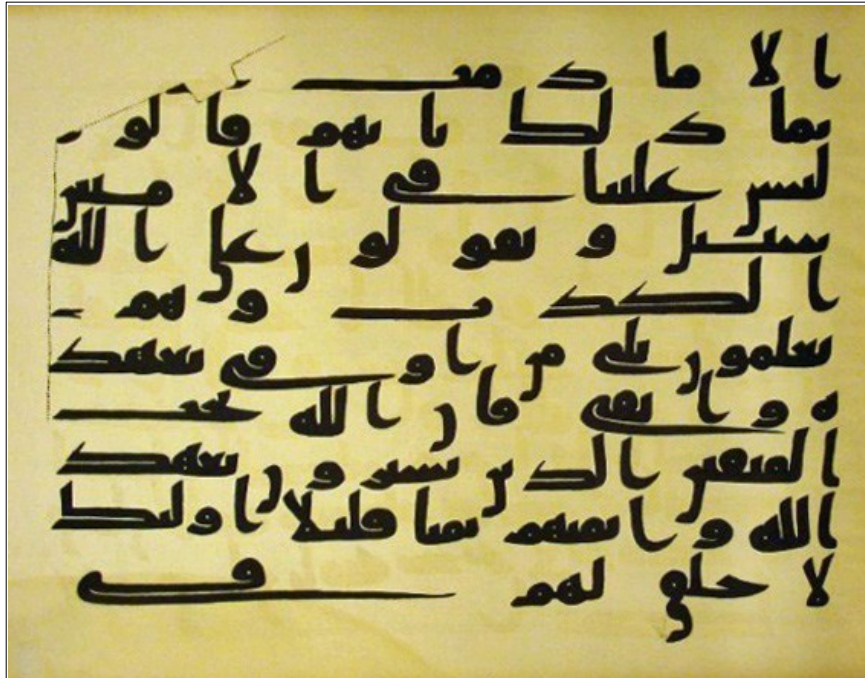 الا ما دمت
يما ذلك بانهم قالو
ليس علينا في الامين
سبيل و يقولون على الله
الكذب و هم
يعلمون بلى من اوفى بعهد
ه و اتقى فان الله يحب
المتقين الذين يشترون بعهد
الله و ايمنهم ثمنا قليلا اولئك
لا خلق لهم في